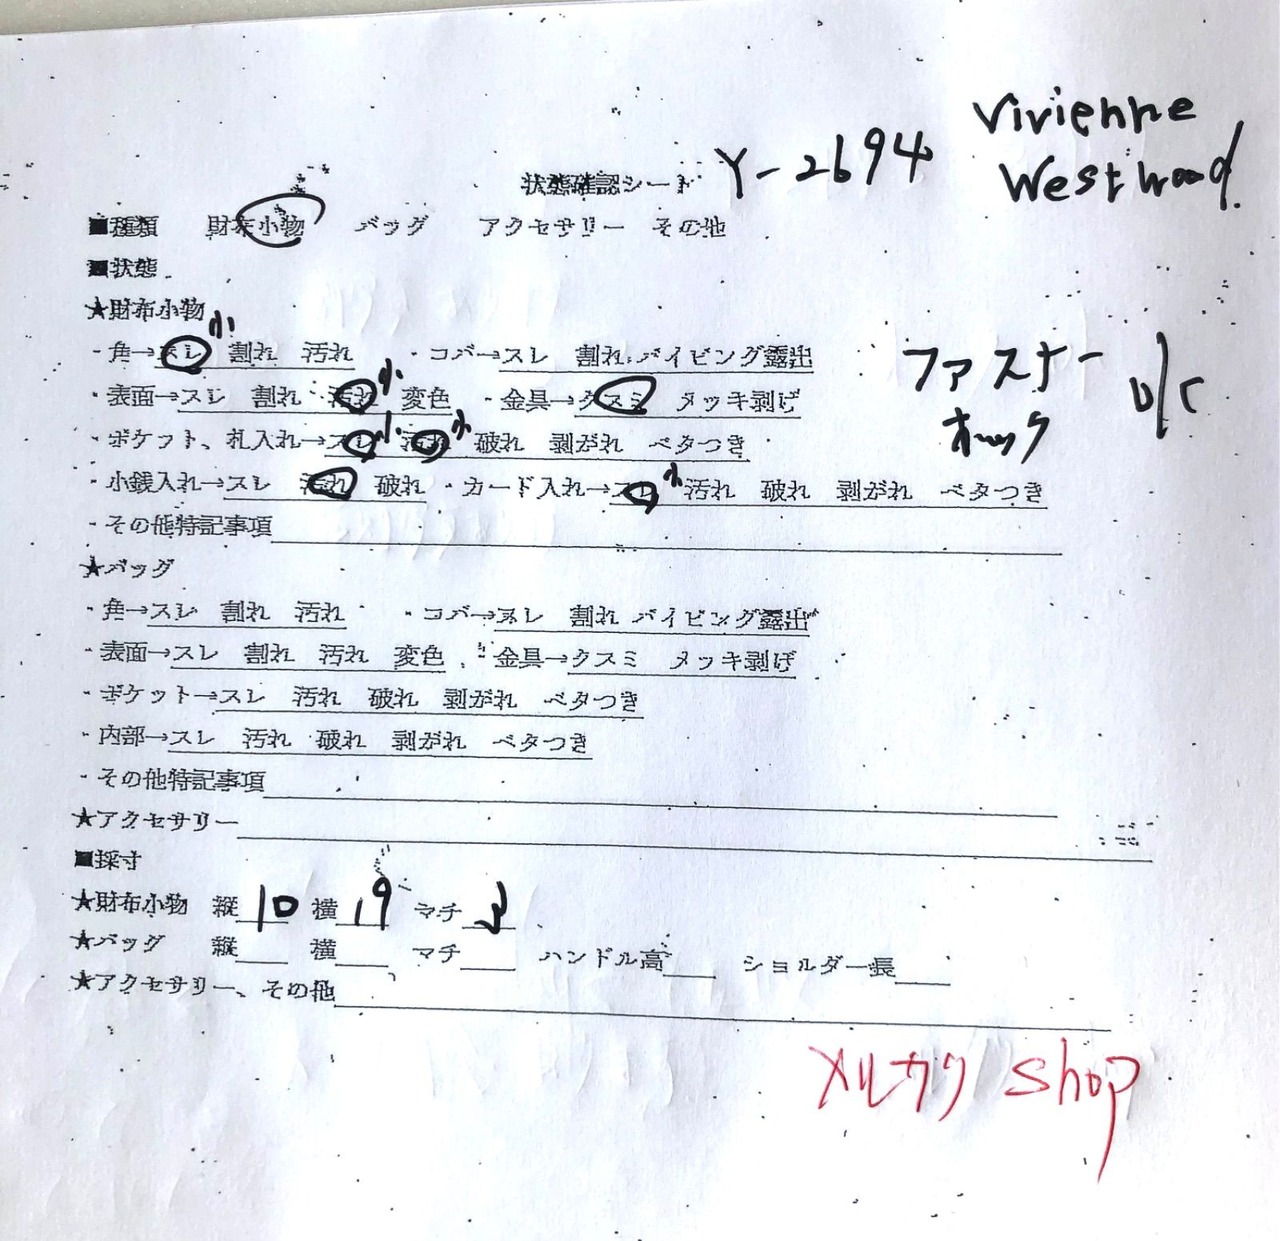 Vivienne
Westwood.
状態確認シート Y-2694
■種類 財布小物 バッグ アクセサリー その他
■状態
★財布小物
小
・角→スレ 割れ 汚れ ・コバ→スレ 割れ パイピング露出
ファスナー
小
・表面→スレ 割れ 汚れ 変色 ・金具→クスミ メッキ剥げ
ホック
小 小
・ポケット、札入れ→スレ 汚れ 破れ 剥がれ ベタつき
小
・小銭入れ→スレ 汚れ 破れ ・カード入れ→スレ 汚れ 破れ 剥がれ ベタつき
・その他特記事項
★バッグ
・角→スレ 割れ 汚れ ・コバ→スレ 割れ パイピング露出
・表面→スレ 割れ 汚れ 変色 ・金具→クスミ メッキ剥げ
・ポケット→スレ 汚れ 破れ 剥がれ ベタつき
・内部→スレ 汚れ 破れ 剥がれ ベタつき
・その他特記事項
★アクセサリー
■採寸
★財布小物 縦 10 横 19 マチ 3
★バッグ 縦 横 マチ ハンドル高 ショルダー長
★アクセサリー、その他
メルカリ shop